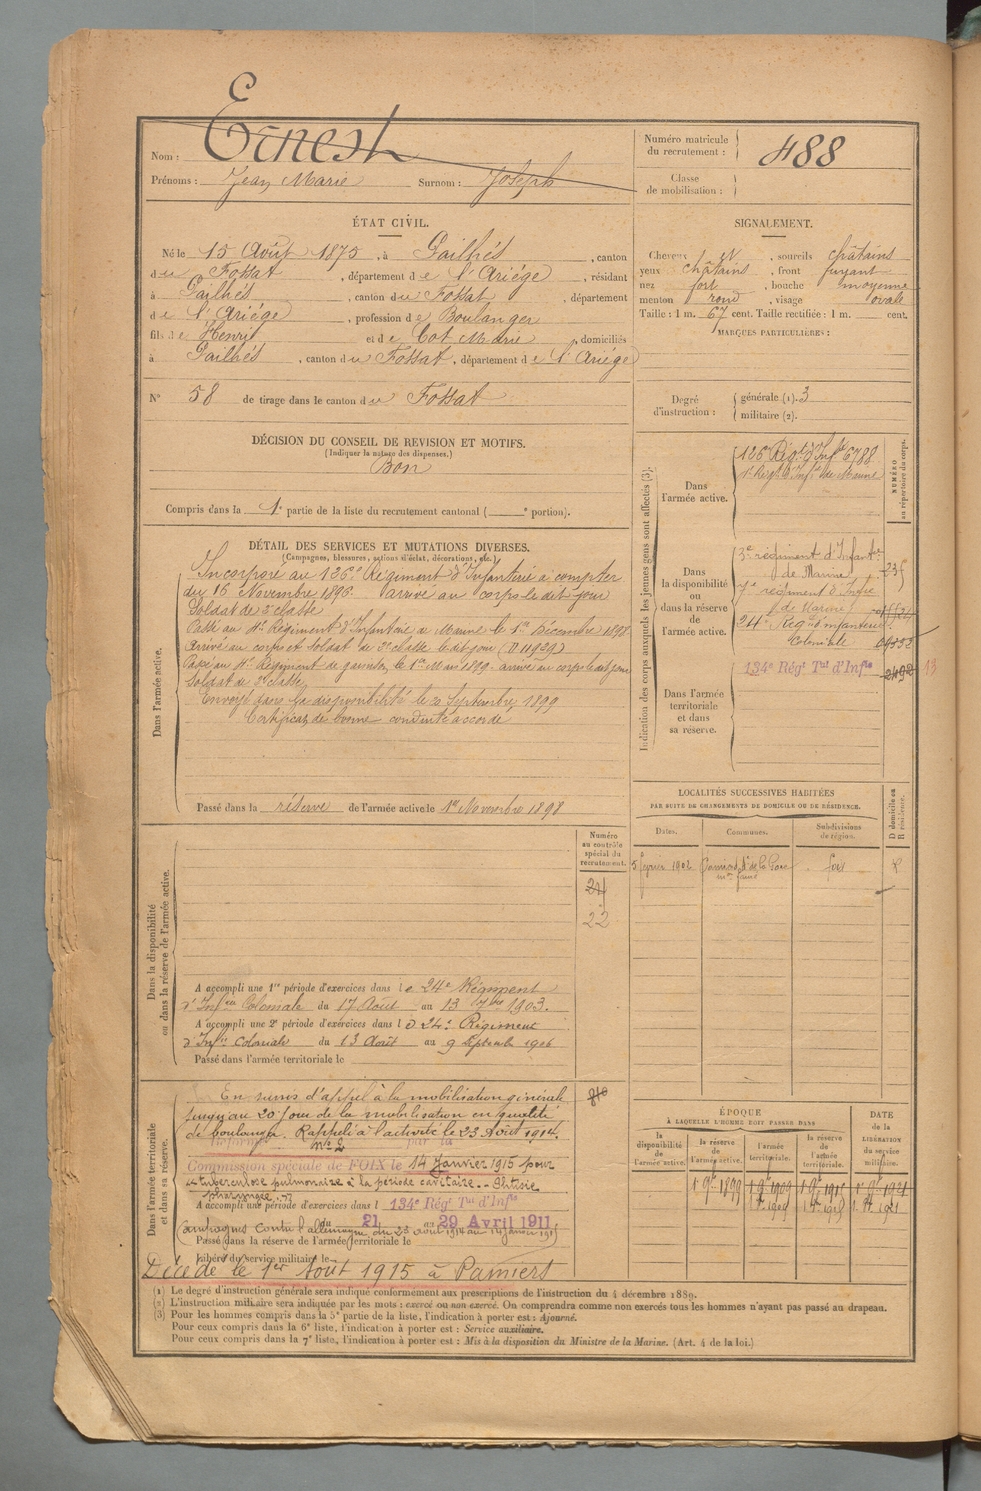 Nom : Ernest
Prénoms : Jean Marie Surnom : Joseph
Numéro matricule du recrutement : 488
Classe de mobilisation :
ÉTAT CIVIL.
Né le 15 Août 1875, à Pailhés, canton
du Fossat, département de l'Ariége, résidant
à Pailhés, canton du Fossat, département
de l'Ariége, profession de Boulanger
fils de Henri et de Cot Marie, domiciliés
à Pailhés, canton du Fossat, département de l'Ariége
N° 58 de tirage dans le canton du Fossat
DÉCISION DU CONSEIL DE REVISION ET MOTIFS.
(Indiquer la nature des dispenses.)
Bon
Compris dans la 1e partie de la liste du recrutement cantonal ( e portion).
SIGNALEMENT.
Cheveux et, sourcils châtains
yeux châtains, front fuyant
nez fort, bouche moyenne
menton rond, visage ovale
Taille : 1 m. 67 cent. Taille rectifiée : 1 m. cent.
MARQUES PARTICULIÈRES :
Degré d'instruction :
générale (1). 3
militaire (2).
DÉTAIL DES SERVICES ET MUTATIONS DIVERSES.
(Campagnes, blessures, actions d'éclat, décorations, etc.)
Dans l'armée active.
Incorporé au 126e Régiment d'Infanterie à compter
du 16 Novembre 1896. Arrivé au corps le dit jour
Soldat de 2e classe
Passé au Régiment d'Infanterie de Marine le 1er Décembre 1898
Arrivé au corps et soldat de 2e classe le dit jour
Passé au Régiment de le 1er Mars 1899. arrivé au corps le dit jour
Soldat de 2e classe
Envoyé dans la disponibilité le Septembre 1899
Certificat de bonne conduite accordé
Passé dans la réserve de l'armée active le 1er Novembre 1898
Indication des corps auxquels les jeunes gens sont affectés (3).
NUMÉRO au répertoire du corps.
Dans l'armée active.
126e Régt d'Infie 6788
Régt d'Infie de Marine
Dans la disponibilité ou dans la réserve de l'armée active.
3e régiment d'Infanterie
de Marine
7e régiment d'Infie
de Marine
24e Régt d'infanterie
Coloniale
Dans l'armée territoriale et dans sa réserve.
134e Régt Tal d'Infie
LOCALITÉS SUCCESSIVES HABITÉES
PAR SUITE DE CHANGEMENTS DE DOMICILE OU DE RÉSIDENCE.
Dates. Communes. Subdivisions de région. D domicile ou R résidence.
5 février 1902 Pamiers de la Gare foix R
Dans la disponibilité ou dans la réserve de l'armée active.
Numéro au contrôle spécial du recrutement.
21
22
A accompli une 1re période d'exercices dans le 24e Régiment
d'Infie Coloniale du 17 Août au 13 7bre 1903.
A accompli une 2e période d'exercices dans le 24e Régiment
d'Infie Coloniale du 13 Août au 9 Septembre 1906
Passé dans l'armée territoriale le
Dans l'armée territoriale et dans sa réserve.
En sursis d'appel à la mobilisation générale
jusqu'au 20e jour de la mobilisation en qualité
de boulanger. Rappelé à l'activité le 23 Août 1914.
Réformé n° 2 par la
Commission spéciale de FOIX le 14 Janvier 1915 pour
tuberculose pulmonaire à la période cavitaire. - Phtisie
A accompli une période d'exercices dans l 134e Régt Tal d'Infie
du 21 au 29 Avril 1911
Campagnes contre l'allemagne du 23 août 1914 au 14 janvier 1915
Passé dans la réserve de l'armée territoriale le
Libéré du service militaire le
Décédé le 1er Août 1915 à Pamiers
ÉPOQUE
À LAQUELLE L'HOMME DOIT PASSER DANS
la disponibilité de l'armée active.
la réserve de l'armée active.
l'armée territoriale.
la réserve de l'armée territoriale.
DATE de la LIBÉRATION DU SERVICE militaire.
(1) Le degré d'instruction générale sera indiqué conformément aux prescriptions de l'instruction du 4 décembre 1889.
(2) L'instruction militaire sera indiquée par les mots : exercé ou non exercé. On comprendra comme non exercés tous les hommes n'ayant pas passé au drapeau.
(3) Pour les hommes compris dans la 5e partie de la liste, l'indication à porter est : Ajourné.
Pour ceux compris dans la 6e liste, l'indication à porter est : Service auxiliaire.
Pour ceux compris dans la 7e liste, l'indication à porter est : Mis à la disposition du Ministre de la Marine. (Art. 4 de la loi.)